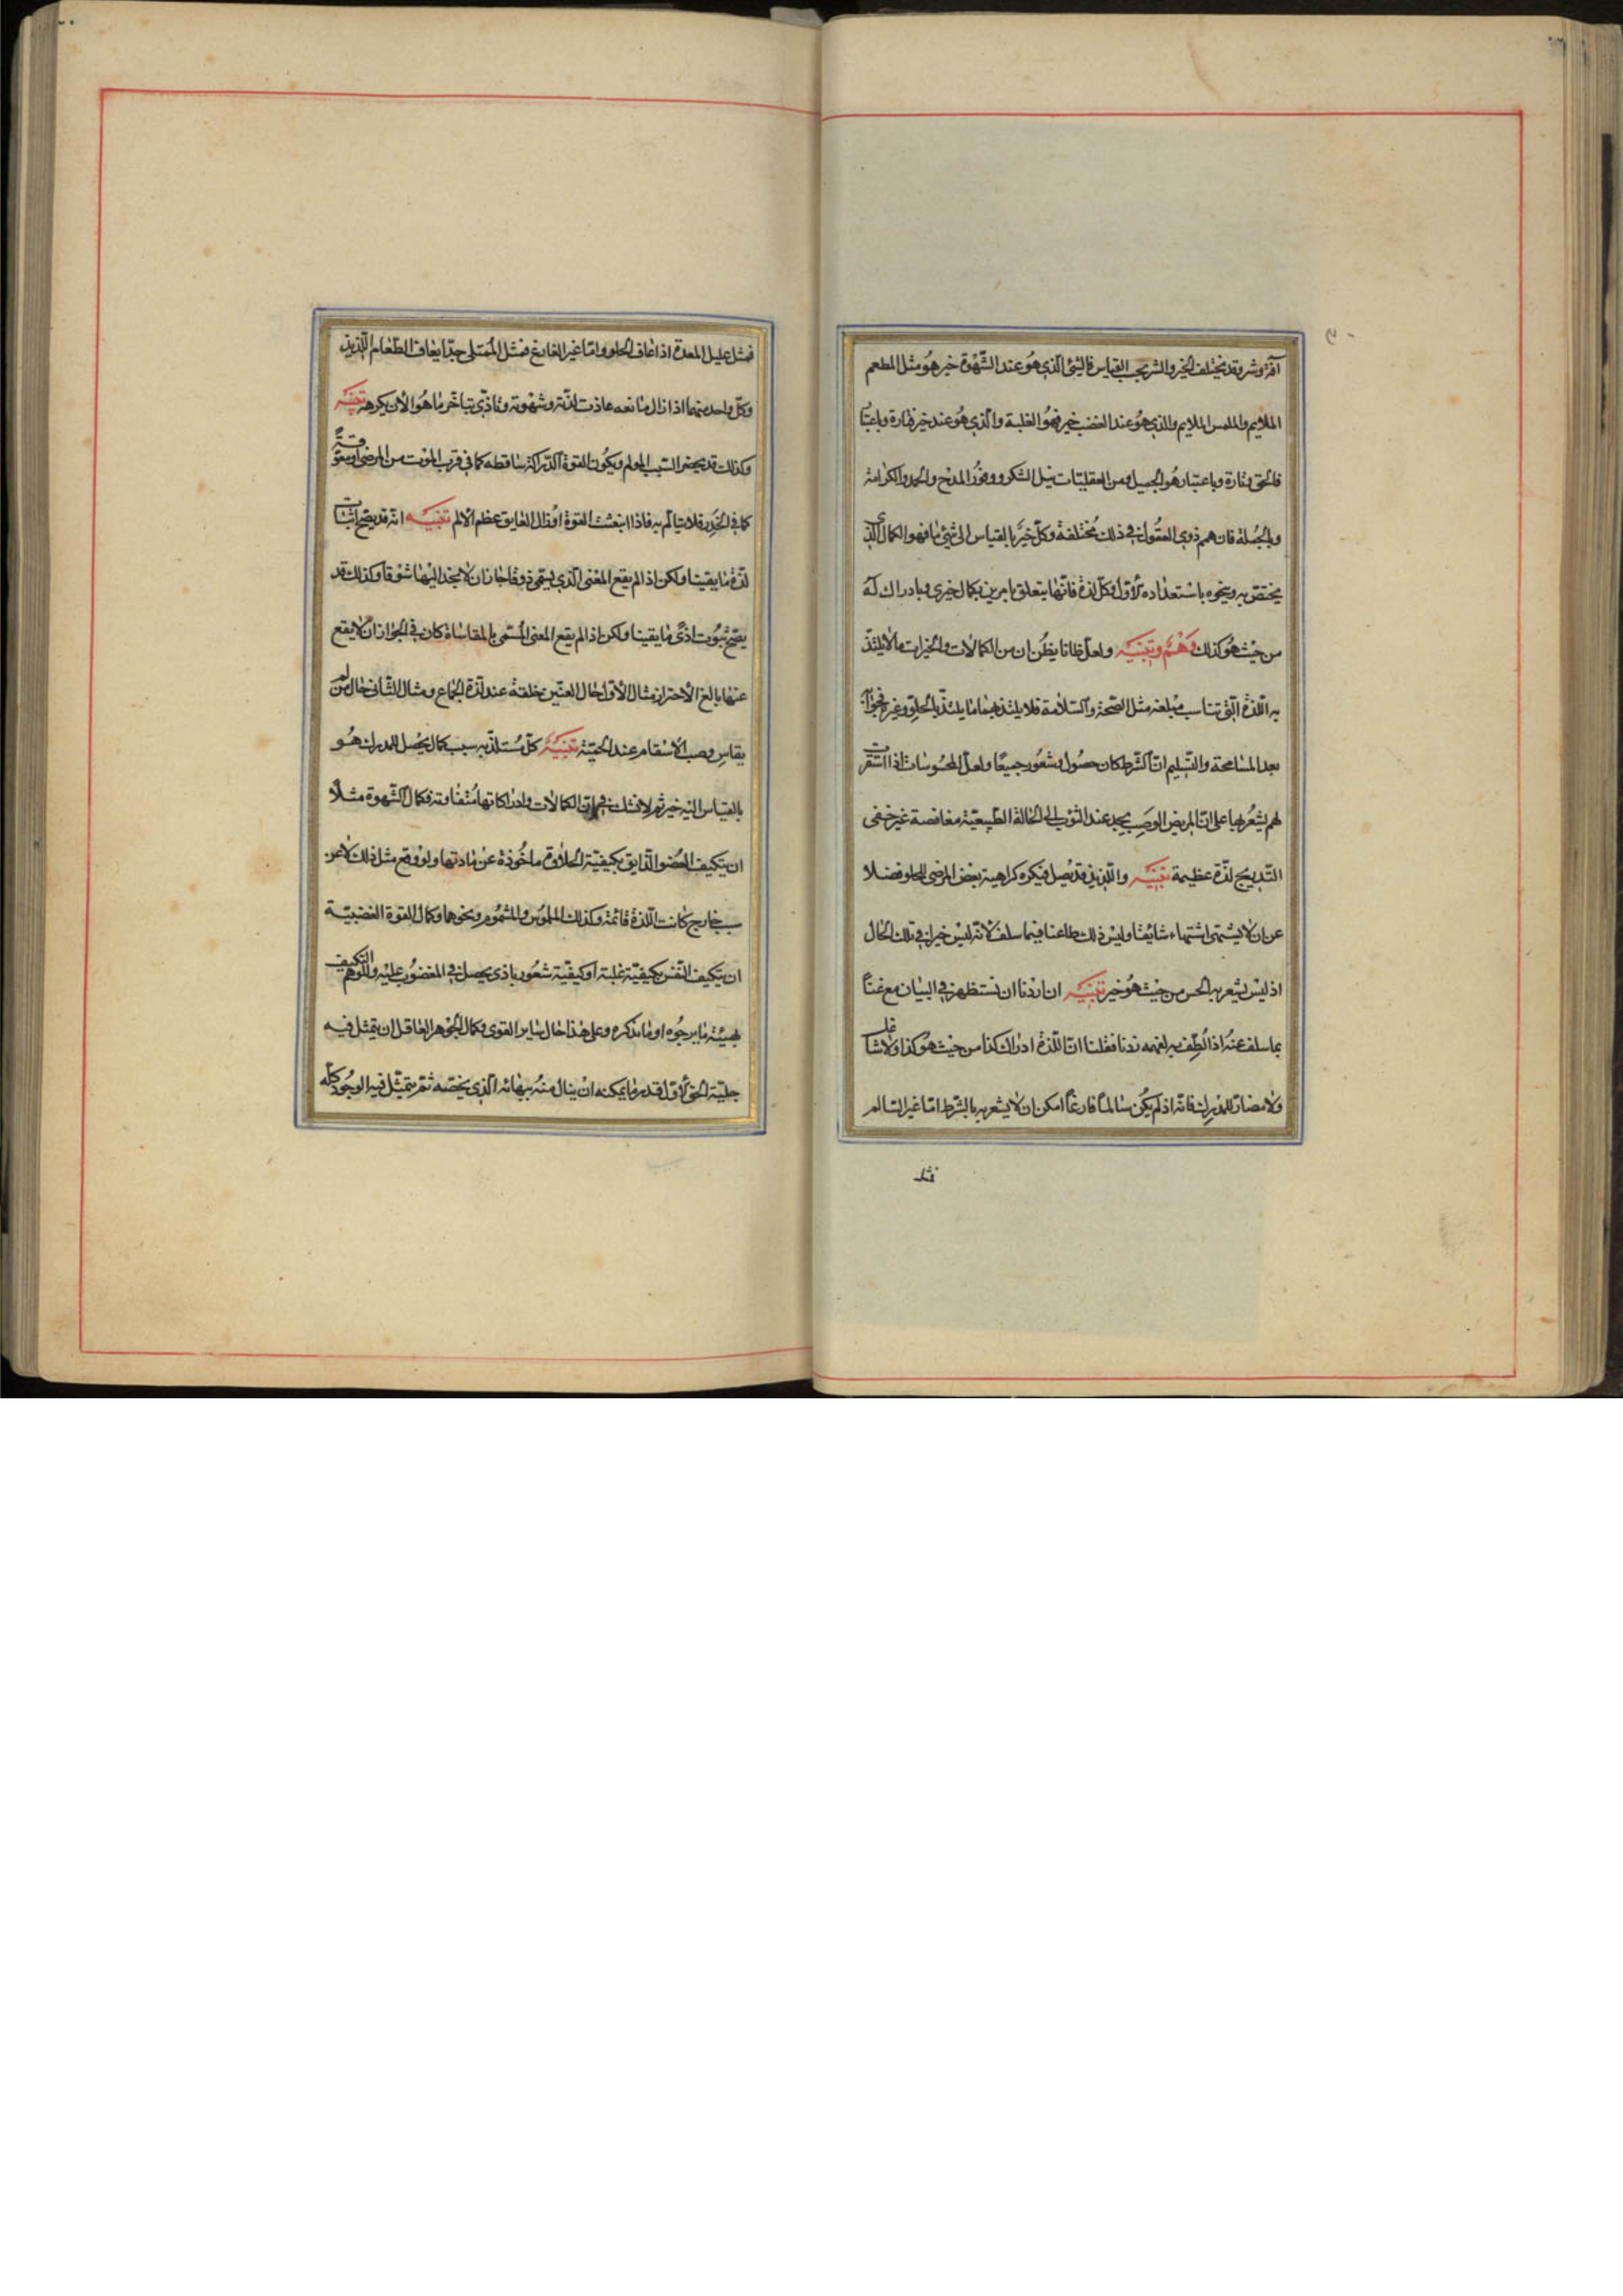 آفة وشر وقد يختلف الخير والشر بحسب القياس فالشئ الذي هو عند الشهوة خير هو مثل المطعم
الملايم والملمس الملايم والذي هو عند الغضب خير فهو الغلبة والذي هو عند خير فتارة وباعتبار
فالحق وتارة وباعتبار هو الجميل ومن العقليات نيل الشكر ووفور المدح والحمد والكرامة
وبالجملة فان همم ذوي العقول في ذلك مختلفة وكل خير بالقياس الى شئ ما فهو الكمال الذي
يختص به وينحوه باستعداده الاول وكل لذة فانها يتعلق بامرين بكمال خيري وبادراك له
من حيث هو كذلك وهم وتنبيه ولعل ظانا يظن ان من الكمالات والخيرات ما لا يلتذ
به اللذة التي تناسب مبلغه مثل الصحة والسلامة فلا يلتذ بهما ما يلتذ بالحلو وغيره فجوابه
بعد المسامحة والتسليم ان الشرط كان حصول وشعور جميعا ولعل المحسوسات اذا استقرت
لم يشعر بها على ان المريض الوصب يجد عند الثوب الى الحالة الطبيعية مغافصة غير خفى
التدريج لذة عظيمة تنبيه واللذيذ قد يصل فيكره كراهية بعض المرضى للحلو فضلا
عن ان لا يشتهى اشتهاء شايقا وليس ذلك طاعنا فيما سلف لانه ليس خيرا في تلك الحال
اذ ليس يشعر به الحس من حيث هو خير تنبيه ان اردنا ان نستظهر في البيان مع غناً
بما سلف عنه اذا لطف لفهمه زدنا فقلنا ان اللذة ادراك كذا من حيث هو كذا ولا شاغل
ولا مضاد للمدرك فانه اذ لم يكن سالماً فارغاً امكن ان لا يشعر به بالشرط اما غير السالم
فمثل
فمثل عليل المعدة اذا عاف الحلو واما غير الفارغ فمثل الممتلى جدا يعاف الطعام اللذيذ
وكل واحد منهما اذا زال مانعه عادت لذته وشهوته وتاذى بتاخر ما هو الان يكرهه تنبيه
وكذلك قد يحضر السبب المولم ويكون القوة الدراكة ساقطه كما في قرب الموت من المرضى او معوقة
كما في الخدر فلا يتالم به فاذا انبعثت القوة او زال العايق عظم الالم تنبيه انه قد يصح اثبات
لذة ما يقينا ولكن اذا لم يقع المعنى الذي يسمى ذوقا جاز ان لا نجد اليها شوقا وكذلك قد
يصح ثبوت اذى ما يقينا ولكن اذا لم يقع المعنى المسمى بالمقاساة كان في الجواز ان لا يقع
عنها بالغ الاحتراز مثال الاول حال العنين خلقة عند لذة الجماع ومثال الثانى حال من لم
يقاس وصب الاسقام عند الحمية تنبيه كل مستلذ به سبب كمال يحصل للمدرك هو
بالقياس اليه خير ثم لا نشك في ان الكمالات وادراكاتها متفاوتة فكمال الشهوة مثلا
ان يتكيف العضو الذايق بكيفية الحلاوة ماخوذة عن مادتها ولو وقع مثل ذلك لا عن
سبب خارج كانت اللذة قائمة وكذلك الملموس والمشموم ونحوهما وكمال القوة الغضبية
ان يتكيف النفس بكيفية غلبة او كيفية شعور باذى يحصل في المغضوب عليه وللوهم التكيف
بهيئة ما يرجوه او ما يذكره وعلى هذا حال ساير القوى وكمال الجوهر العاقل ان يتمثل فيه
جلية الحق الاول قدر ما يمكنه ان ينال منه ببهائه الذي يخصه ثم يتمثل فيه الوجود كله